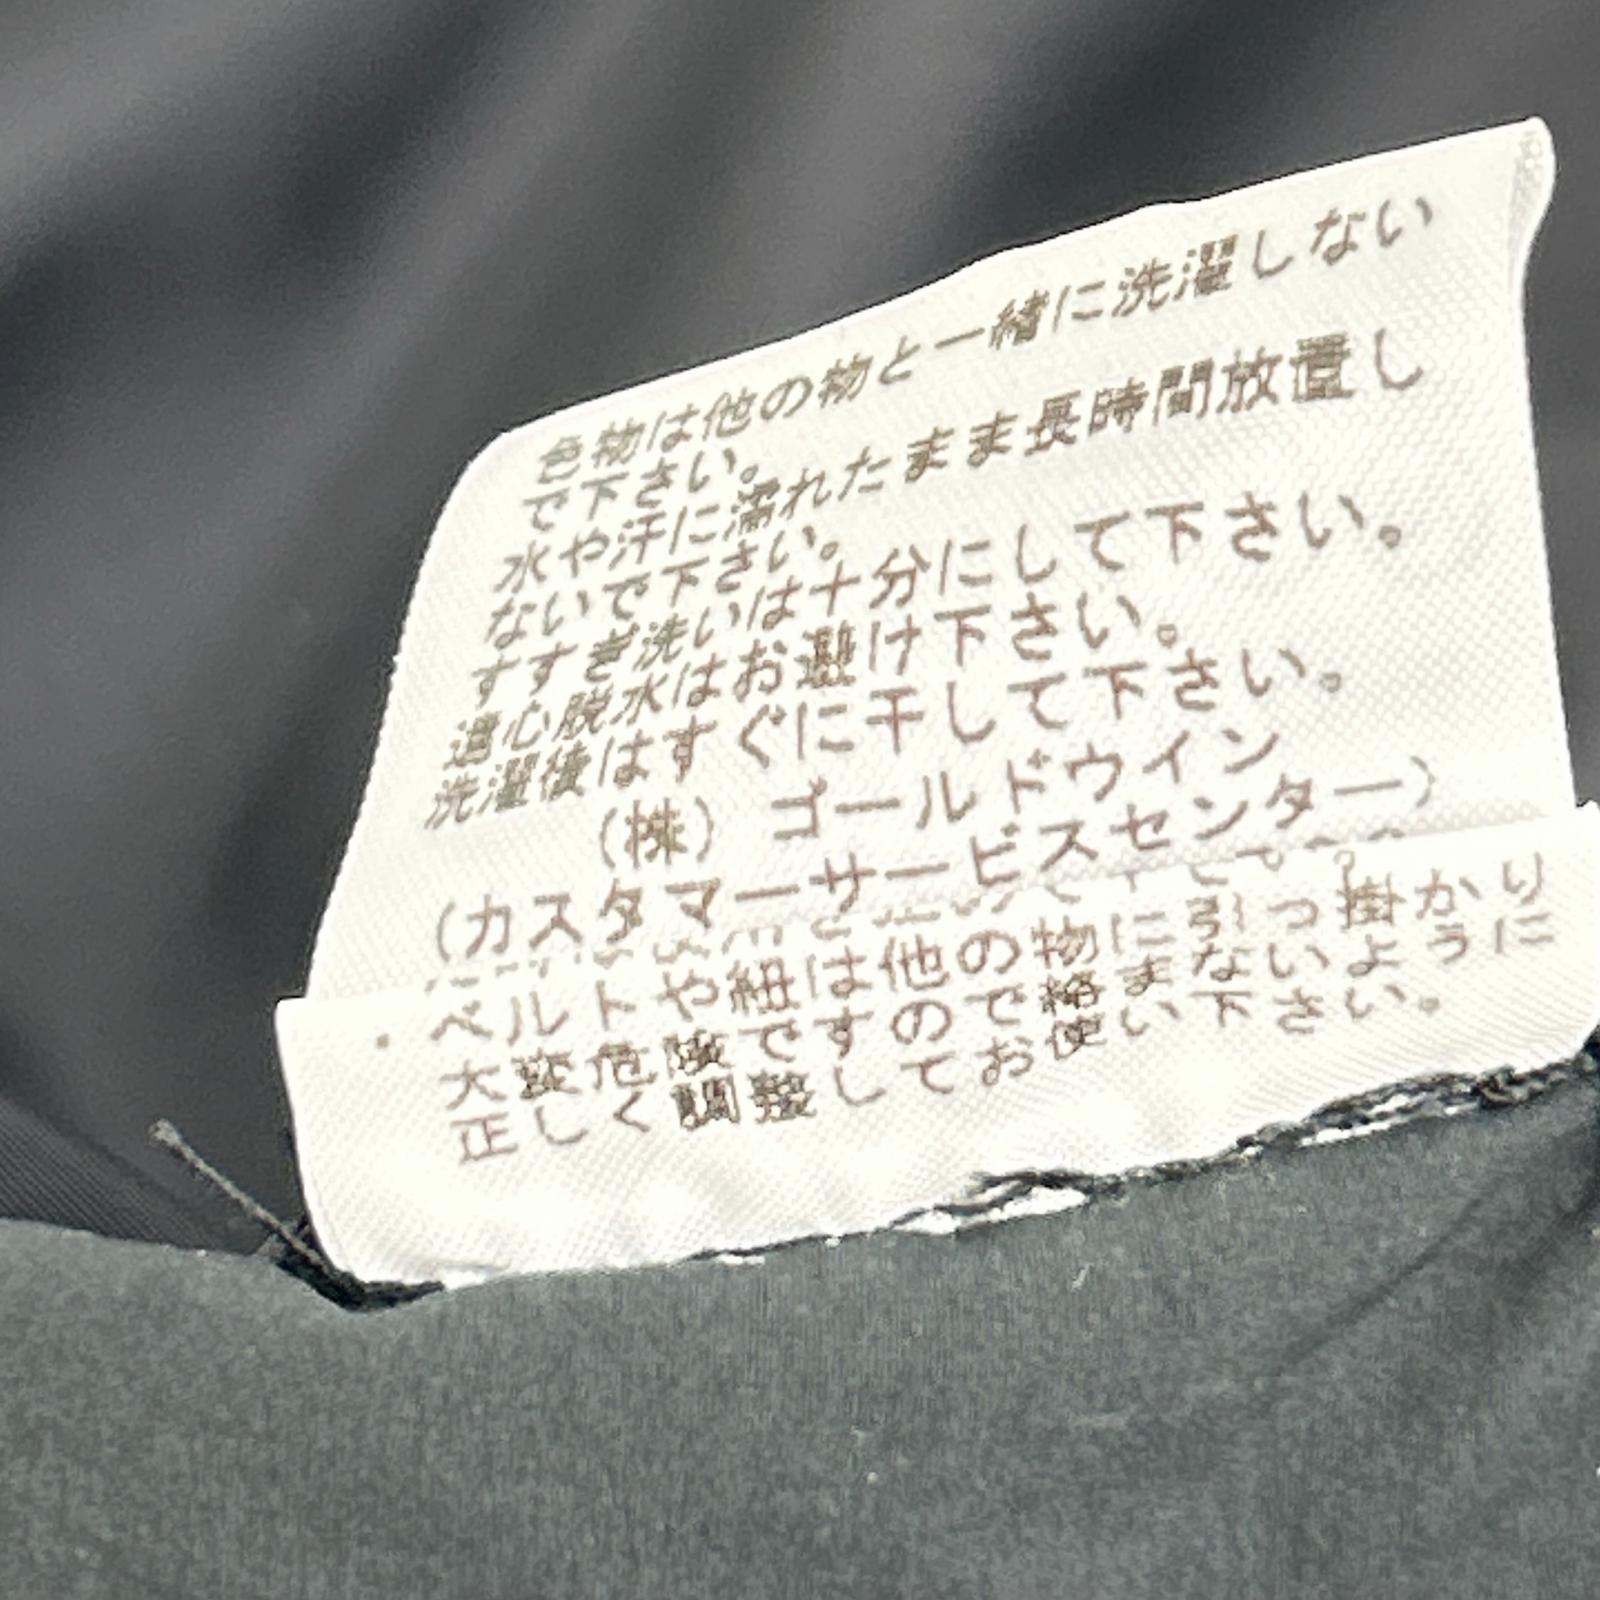 色物は他の物と一緒に洗濯しない
で下さい。
水や汗に濡れたまま長時間放置し
ないで下さい。
すすぎ洗いは十分にして下さい。
遠心脱水はお避け下さい。
洗濯後はすぐに干して下さい。
(株) ゴールドウイン
(カスタマーサービスセンター)
・ベルトや紐は他の物に引っ掛かり
大変危険ですので絡まないように
正しく調整してお使い下さい。